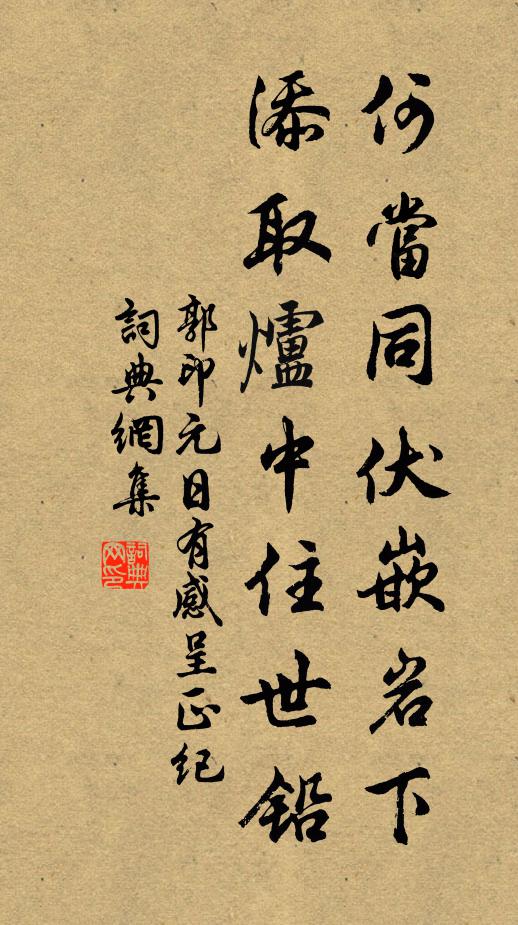 何當同伏嵌岩下
添取爐中住世鉛
郭印元日有感呈正紀
詞典網集
詞典網印